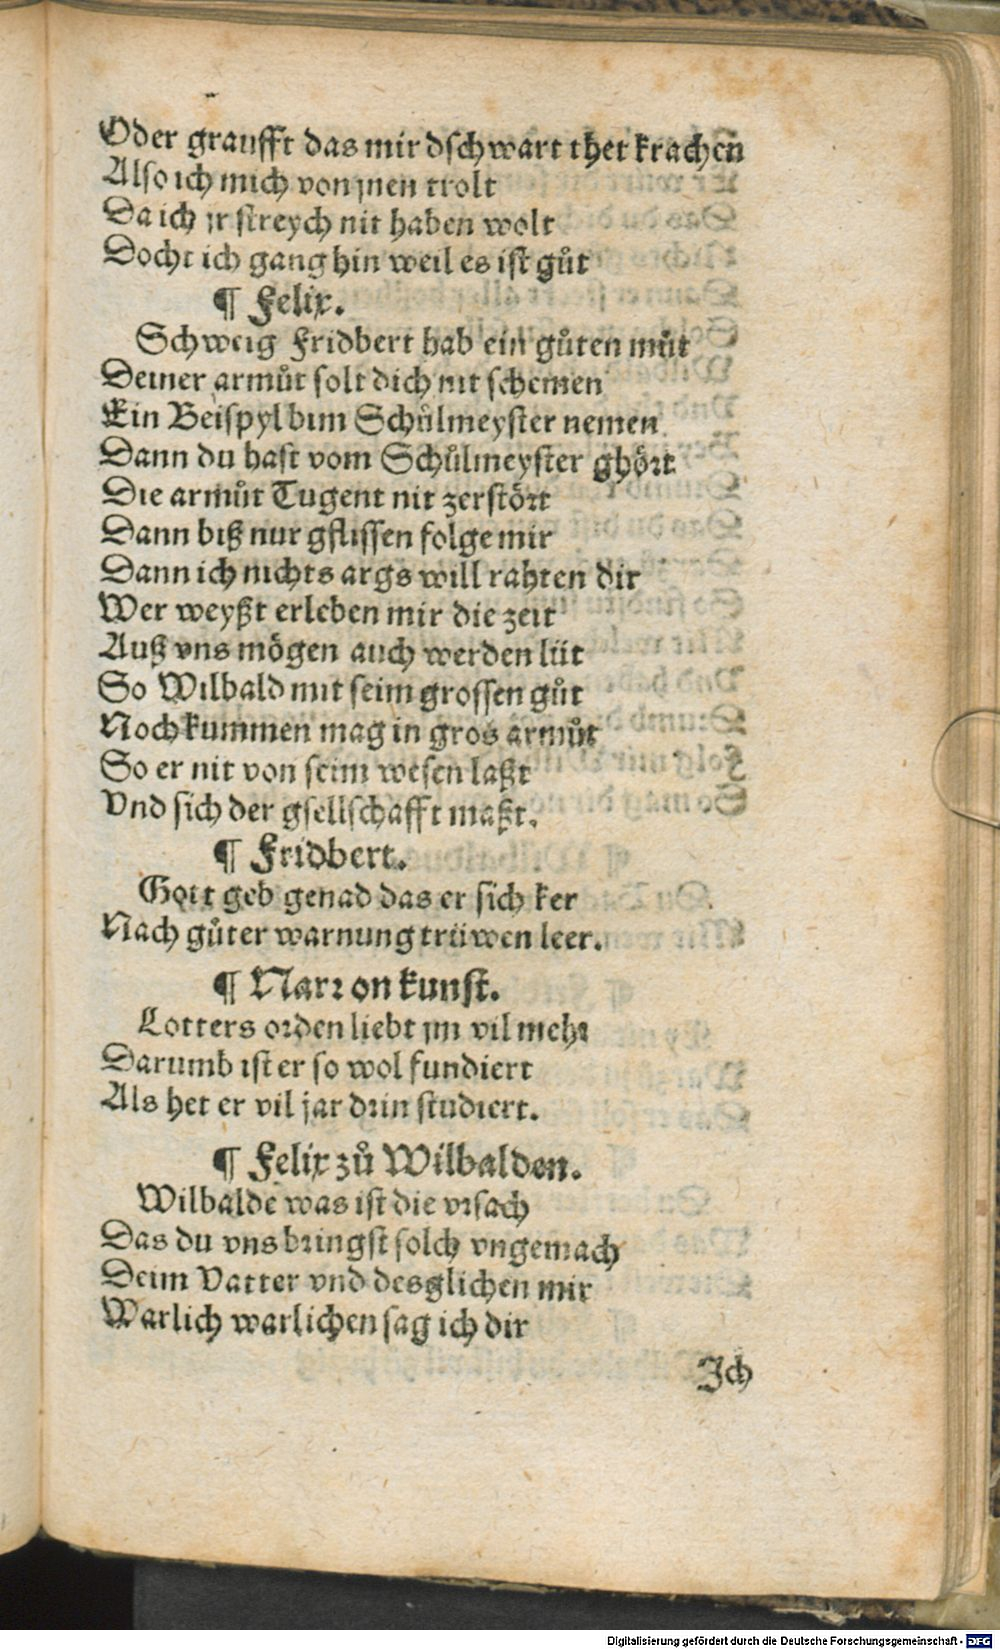 Oder graufft das mir dschwart thet krachen
Also ich mich von jnen trolt
Da ich jr streych nit haben wolt
Docht ich gang hin weil es ist gůt
¶ Felix.
Schweig Fridbert hab ein gůten můt
Deiner armůt solt dich nit schemen
Ein Beispyl bim Schůlmeyster nemen
Dann du hast vom Schůlmeyster ghört
Die armůt Tugent nit zerstört
Dann biß nur gflissen folge mir
Dann ich nichts args will rahten dir
Wer weyßt erleben mir die zeit
Auß vns mögen auch werden lüt
So Wilbald mit seim grossen gůt
Noch kummen mag in gros armůt
So er nit von seim wesen laßt
Vnd sich der gsellschafft maßt.
¶ Fridbert.
Gott geb genad das er sich ker
Nach gůter warnung trüwen leer.
¶ Narr on kunst.
Lotters orden liebt jm vil mehr
Darumb ist er so wol fundiert
Als het er vil jar drin studiert.
¶ Felix zů Wilbalden.
Wilbalde was ist die vrsach
Das du vns bringst solch vngemach
Deim Vatter vnd desglichen mir
Warlich warlichen sag ich dir
Ich
Digitalisierung gefördert durch die Deutsche Forschungsgemeinschaft - DFG